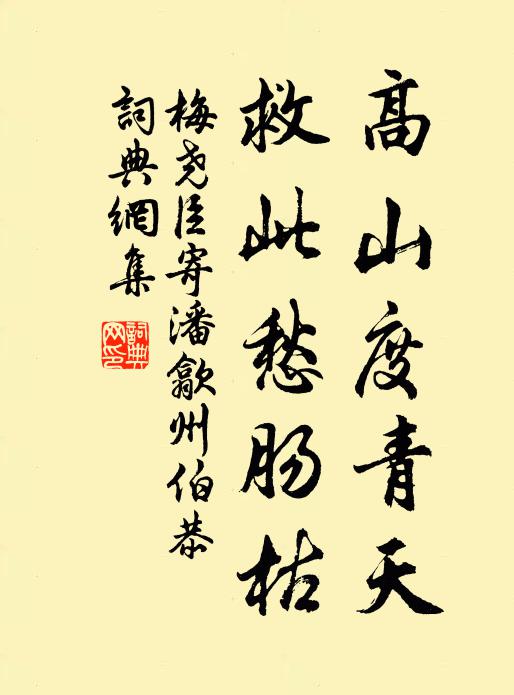 高山度青天
救此愁肠枯
梅尧臣寄潘歙州伯恭
詞典網集
詞典网印